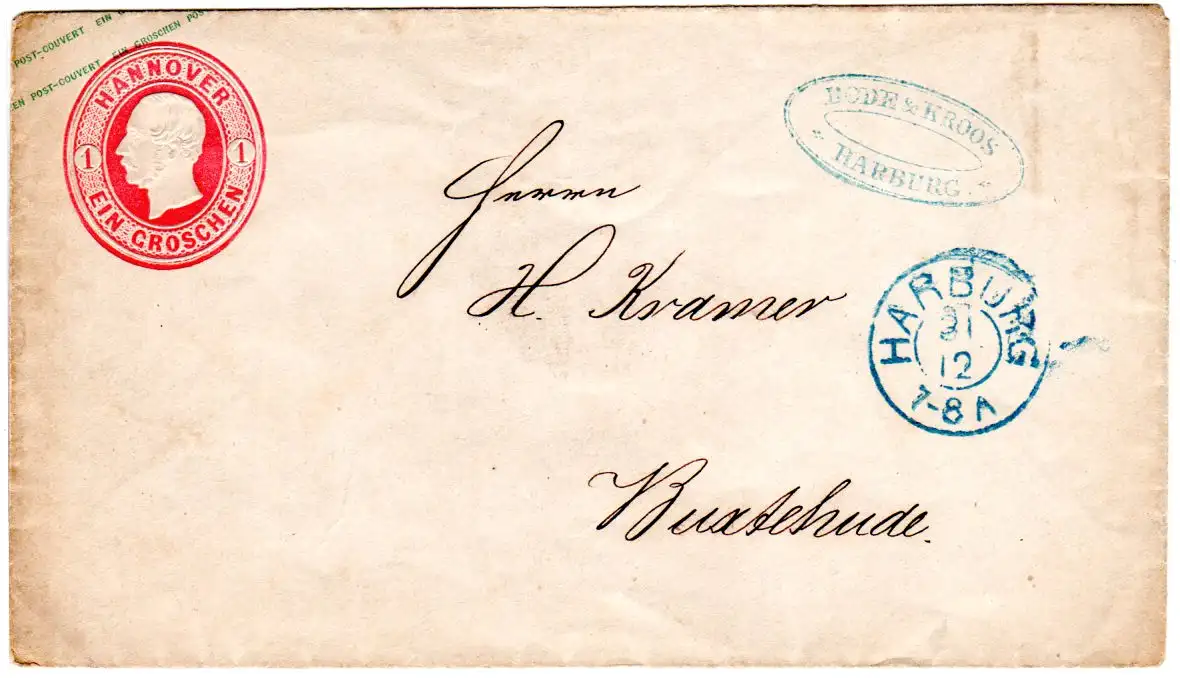 POST-COUVERT EIN G
EN POST-COUVERT EIN GROSCHEN POST
HANNOVER
1 1
EIN GROSCHEN
BODE & KROOS
HARBURG
Herrn
H. Kramer
HARBURG
31
12
7-8 A
Buxtehude.